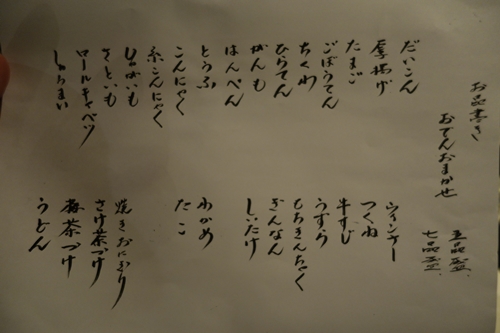 お品書き
おでんおまかせ
五品盛
七品盛
だいこん
厚揚げ
たまご
ごぼうてん
ちくわ
ひらてん
がんも
はんぺん
とうふ
こんにゃく
糸こんにゃく
じゃがいも
さといも
ロールキャベツ
しゅうまい
ウインナー
つくね
牛すじ
うずら
もちきんちゃく
ぎんなん
しいたけ
わかめ
たこ
焼きおにぎり
さけ茶づけ
梅茶づけ
うどん